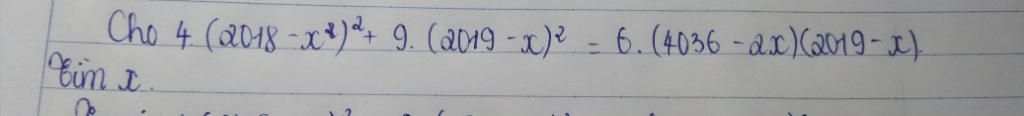 Cho 4.(2018-x²)²+ 9.(2019-x)² = 6.(4036-2x)(2019-x).
Tìm x.